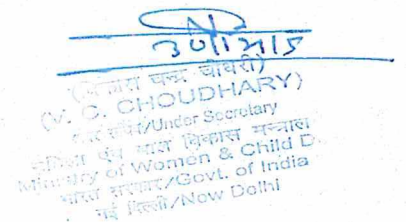 (विकास चन्द्र चौधरी)
(V. C. CHOUDHARY)
अवर सचिव/Under Secretary
महिला एवं बाल विकास मन्त्रालय
Ministry of Women & Child D
भारत सरकार/Govt. of India
नई दिल्ली/New Delhi